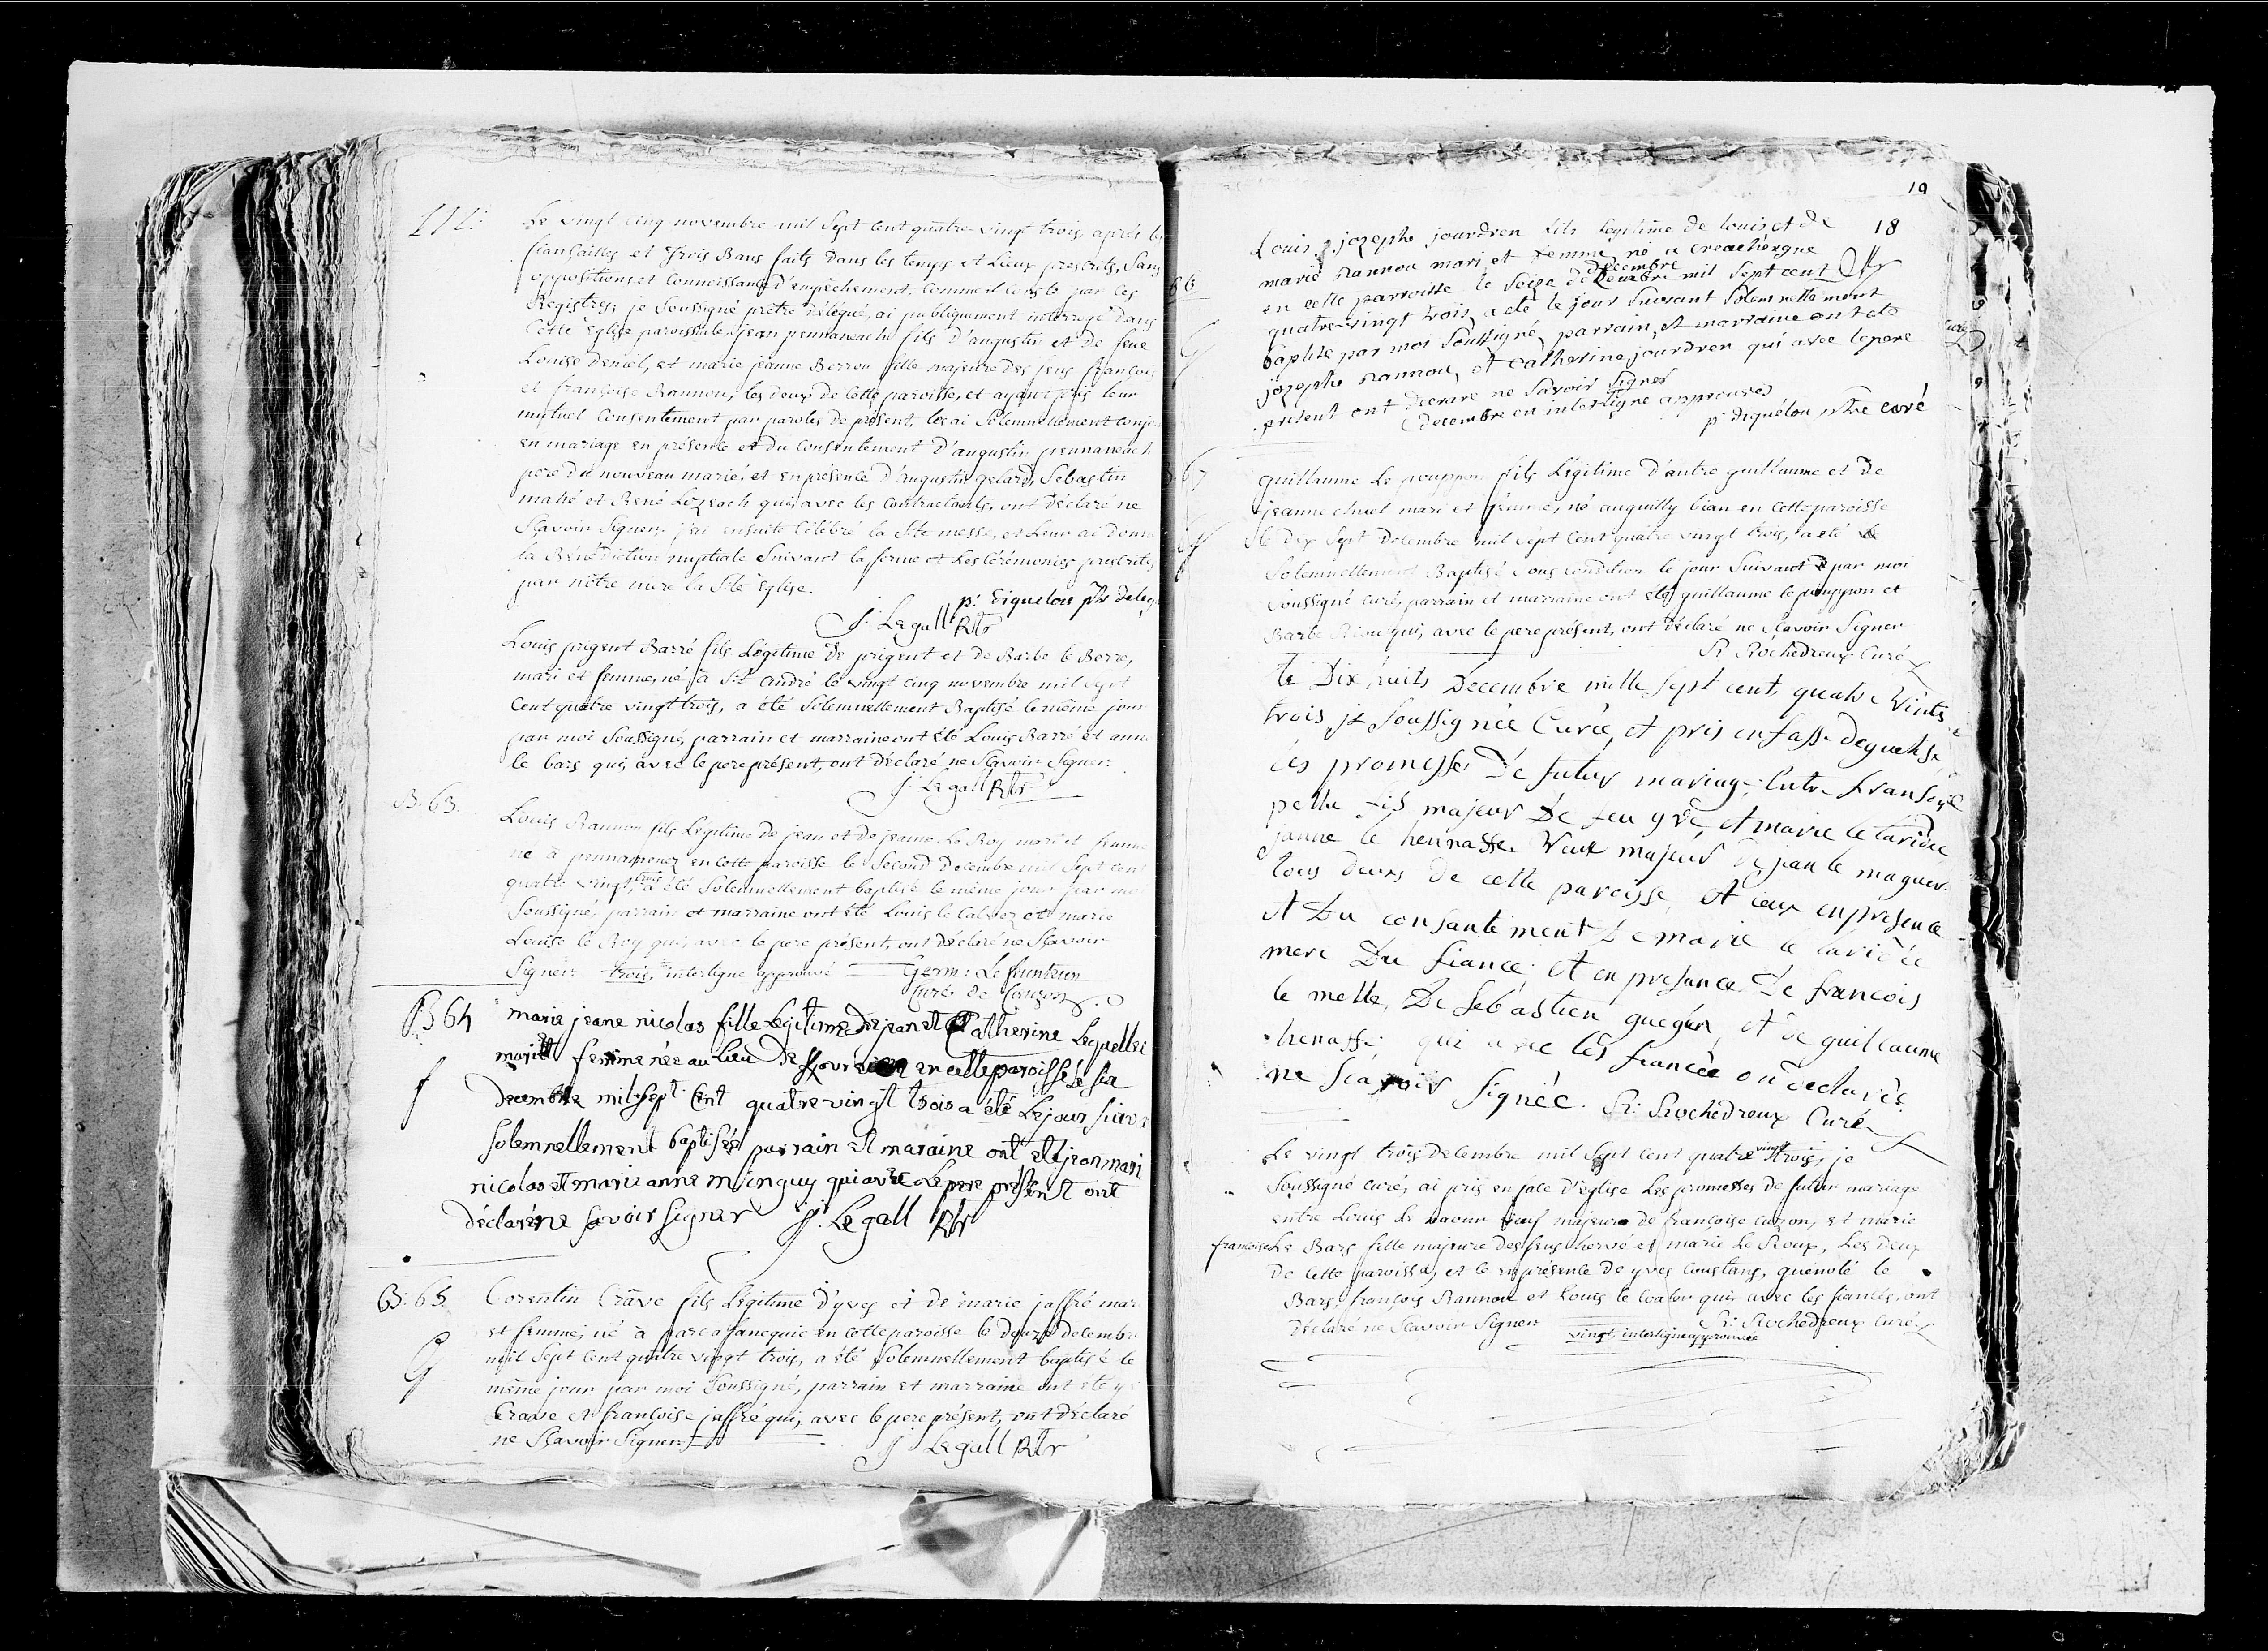 Le vingt cinq novembre mil Sept cent quatre-vingt trois, après les
fiançailles et trois Bans faits dans les temps et Lieux prescrits, Sans
oppositions et connoissance d'empêchement, comme il conste par les
Registres; je Soussigné prêtre délégué, ai publiquement interrogé dans
cette Eglise paroissiale jean pennaneach fils d'augustin et de feue
Louise deniel, et marie jeanne Berrou fille majeure des feus françois
et françoise Rannou, les deux de cette paroisse, et ayant pris leur
mutuel consentement par paroles de présent, les ai Solemnellement conj
en mariage en présence et du consentement d'augustin pennaneach
pere du nouveau marié, et en présence d'augustin gelard, Sebastin
mahé et René Lezeach qui, avec les contractants, ont déclaré ne
Sçavoir Signer; j'ai ensuite célébré la Ste messe, et Leur ai donné
la Bénédiction nuptiale Suivant la forme et les cérémonies prescrites
par nôtre mere la Ste Eglise.
p: Diquelou ptr delegé
J: Le gall Rtr
Louis prigent Barré fils Légitime de prigent et de Barbe le Berre,
mari et femme, né à St andré le vingt cinq novembre mil Sept
cent quatre vingt trois, a été Solemnellement Baptisé le même jour
par moi Soussigné, parrain et marraine ont été Louis Barré et anne
le bars qui, avec le pere présent, ont déclaré ne Sçavoir Signer.
J: Le gall Rtr
B. 63.
Louis Rannou fils Légitime de jean et de jeanne Le Roy mari et femme
né à en cette paroisse le Second decembre mil Sept cent
quatre vingt trois a été Solemnellement baptisé le même jour par moi
Soussigné, parrain et marraine ont été Louis le et marie
Louise le Roy qui, avec le pere présent, ont déclaré ne Sçavoir
Signer trois, interligne approuvé Germ: Le
Curé de Crauzon
B 64
marie jeane nicolas fille Légitime de jean et Catherine Lequellec
mari et femme née au Lieu de en cette paroisse le six
decembre mil sept Cent quatre vingt trois a été Le jour Suiva
Solemnellement baptisée parrain et maraine ont eté jean mari
nicolas et marie anne minguy qui avec Le pere présent ont
déclaré ne savoir signer J: Le gall Rtr
B: 65
Corentin Crâve fils Légitime d'yves et de marie jaffré mari
et femme, né à en cette paroisse le douze decembre
mil Sept cent quatre vingt trois, a été Solemnellement baptisé le
même jour par moi Soussigné, parrain et marraine ont été
Crave et françoise jaffré qui, avec le pere présent, ont déclaré
ne Sçavoir Signer J: Le gall Rtr
18
66
Louis josephe jourdren fils Legitime de louis et de
marie Rannou mari et femme né a
en cette parroisse le Seize decembre mil Sept cent
quatrevingt trois, a été le jour Suivant Solemnellement
baptisé par moi Soussigné, parrain, et marraine ont eté
josephe Rannou, et Catherine jourdren qui avec lepere
présent ont declaré ne Savoir Signer
decembre en interligne approuvé
p: diquélou ptre curé
67
guillaume Le pouppon fils Légitime d'autre guillaume et de
jeanne mari et femme, né auquilly bian en cette paroisse
le dix Sept decembre mil Sept Cent quatre vingt trois, a été
Solemnellement Baptisé sous condition le jour Suivant par moi
Soussigné curé, parrain et marraine ont été guillaume le pouppon et
Barbe Riou qui, avec le pere présent, ont déclaré ne Sçavoir Signer
Sr: Rochedreux Curé
Le Dix huits Decembre mille sept cent, quatre Vints
trois je Soussignée Curée, et pris enfasse deguelise
les promesses De futur mariage Entre fransois
pelle fis majeur De feu yve, et marie le laridee
janne le hennasse Veuve majeur De jean le maguer
tous deux De cette paroisse, et ceux enpresence
et Du consantement De marie le laridée
mere Du fiancé, et en presance De francois
le melle, De Sebastien guegen, et De guillaume
henasse, qui avec les fiancée on declarée
ne scavoir signée. Sr: Rochedreux Curé
Le vingt trois decembre mil Sept cent quatre vingt trois, je
Soussigné curé, ai pris en face d'église les promesses de futur mariage
entre Louis le naour veuf majeur de françoise cuzon, et marie
francoise Le Bars fille majeure des feus hervé et marie Le Roux, Les deux
de cette paroisse, et ce en présence de yves coustans, guénolé le
Bars, françois Rannou et Louis le coatou qui, avec les fiancés, ont
déclaré ne Sçavoir Signer Sr: Rochedreux Curé
vingt, interligne approuvée